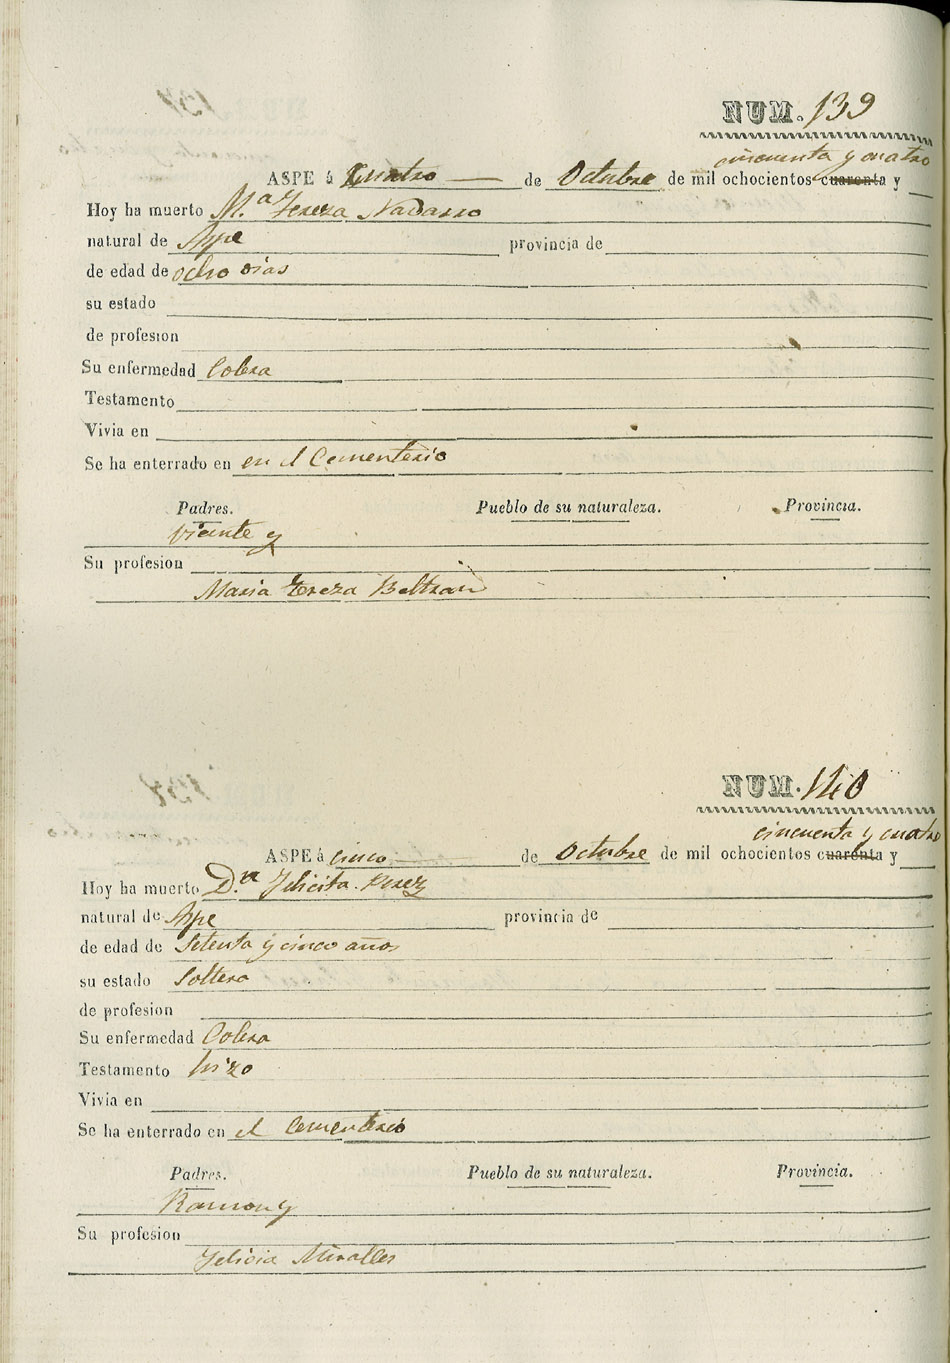 NUM. 139
cincuenta y cuatro
ASPE á Cuatro de Octubre de mil ochocientos cuarenta y
Hoy ha muerto M.ª Tereza Navarro
natural de Aspe provincia de
de edad de ocho dias
su estado
de profesion
Su enfermedad Colera
Testamento
Vivia en
Se ha enterrado en en el Cementerio
Padres. Pueblo de su naturaleza. Provincia.
Vicente y
Su profesion
Maria Tereza Beltran
NUM. 140
cincuenta y cuatro
ASPE á cinco de Octubre de mil ochocientos cuarenta y
Hoy ha muerto D.ª Felicita Perez
natural de Aspe provincia de
de edad de Setenta y cinco años
su estado Soltera
de profesion
Su enfermedad Colera
Testamento hizo
Vivia en
Se ha enterrado en el Cementerio
Padres. Pueblo de su naturaleza. Provincia.
Ramon y
Su profesion
Felicia Miralles